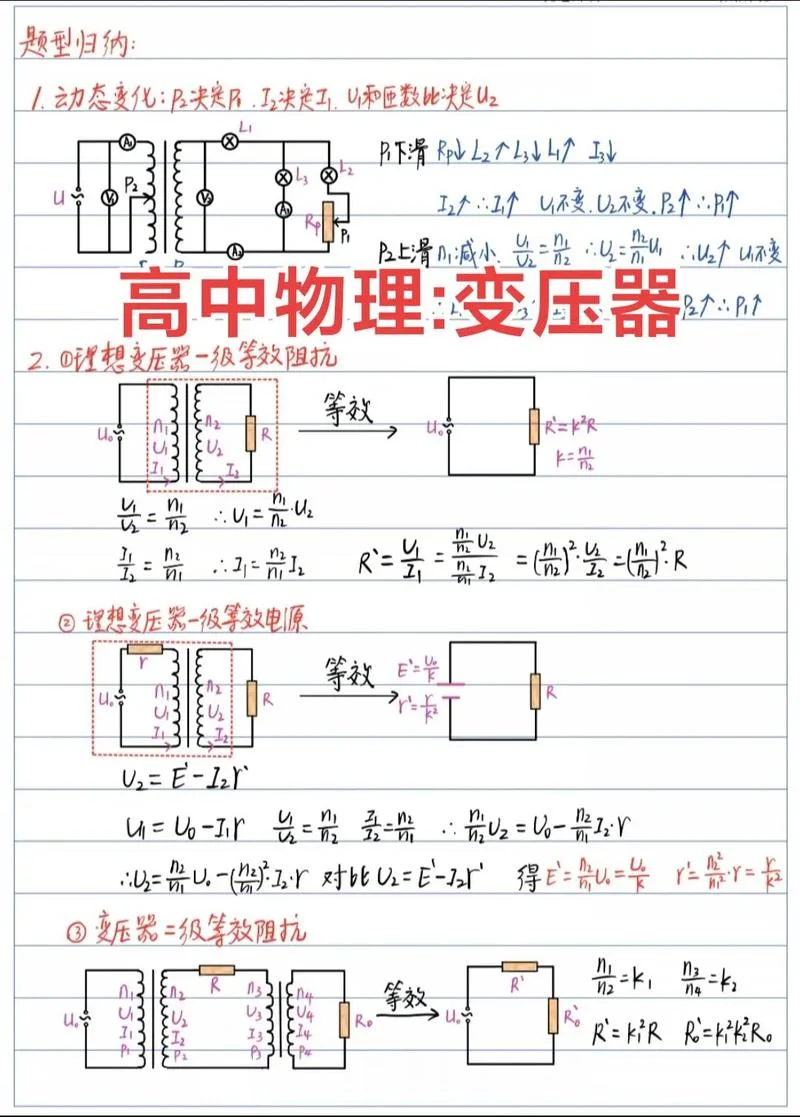 题型归纳:
1. 动态变化: P₂决定P₁. I₂决定I₁. U₁和匝数比决定U₂
A₁ L₁
P₁下滑 Rp↓ L₂↑ L₃↓ L₁↑ I₃↓
U V₁ P₂ V₂ L₃ L₂ A₃ Rp P₁
I₂↑ ∴I₁↑ U₁不变. U₂不变. P₂↑ ∴P₁↑
A₂
P₂上滑 n₁减小. U₁/U₂=n₁/n₂ ∴U₂=n₂/n₁U₁ ∴U₂↑ U₁不变
高中物理:变压器
P₂↑∴P₁↑
2. ①理想变压器一级等效阻抗
U₀ n₁ U₁ I₁ n₂ U₂ I₂ R
等效
U₀ R`=k²R
k=n₁/n₂
U₁/U₂=n₁/n₂ ∴U₁=n₁/n₂·U₂
I₁/I₂=n₂/n₁ ∴I₁=n₂/n₁I₂ R`=U₁/I₁=(n₁/n₂U₂)/(n₂/n₁I₂)=(n₁/n₂)²·U₂/I₂=(n₁/n₂)²·R
②理想变压器一级等效电源
r U₀ n₁ U₁ I₁ n₂ U₂ I₂ R
等效
E`=U₀/k
r`=r/k²
R
U₂=E`-I₂r`
U₁=U₀-I₁r U₁/U₂=n₁/n₂ I₁/I₂=n₂/n₁ ∴n₁/n₂U₂=U₀-n₂/n₁I₂·r
∴U₂=n₂/n₁U₀-(n₂/n₁)²·I₂·r 对比U₂=E`-I₂r` 得E`=n₂/n₁U₀=U₀/k r`=n₂²/n₁²·r=r/k²
③变压器二级等效阻抗
U₀ n₁ U₁ I₁ P₁ n₂ U₂ I₂ P₂ R n₃ U₃ I₃ P₃ n₄ U₄ I₄ P₄ R₀
等效
U₀ R` R₀`
n₁/n₂=k₁ n₃/n₄=k₂
R`=k₁²R R₀`=k₁²k₂²R₀